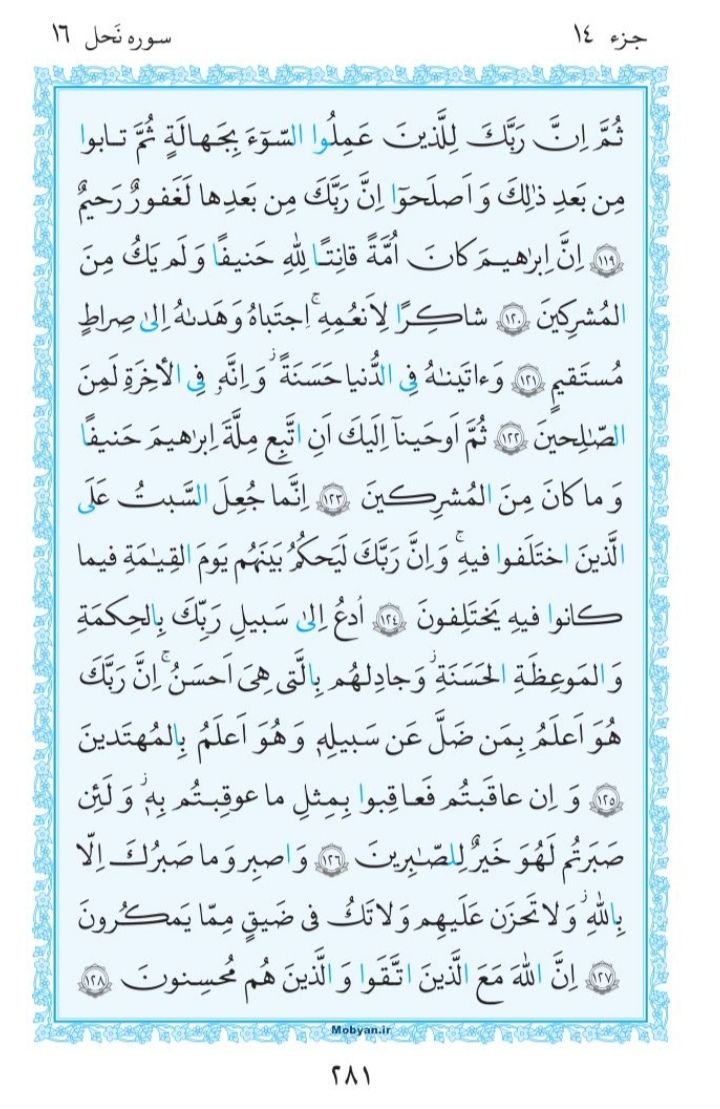 جزء ١٤
سوره نَحل ١٦
ثُمَّ اِنَّ رَبَّكَ لِلَّذينَ عَمِلُوا السّوٓءَ بِجَهالَةٍ ثُمَّ تابوا
مِن بَعدِ ذٰلِكَ وَ اَصلَحوٓا اِنَّ رَبَّكَ مِن بَعدِها لَغَفورٌ رَحيمٌ
﴿١١٩﴾ اِنَّ اِبرٰهيمَ كانَ اُمَّةً قانِتًا لِلّٰهِ حَنيفًا وَ لَم يَكُ مِنَ
المُشرِكينَ ﴿١٢٠﴾ شاكِرًا لِاَنعُمِهِ ۚ اجتَباهُ وَ هَدىٰهُ اِلىٰ صِراطٍ
مُستَقيمٍ ﴿١٢١﴾ وَ ءاتَينٰهُ فِي الدُّنيا حَسَنَةً ۖ وَ اِنَّهُ فِي الأٰخِرَةِ لَمِنَ
الصّٰلِحينَ ﴿١٢٢﴾ ثُمَّ اَوحَينآ اِلَيكَ اَنِ اتَّبِع مِلَّةَ اِبرٰهيمَ حَنيفًا
وَ ما كانَ مِنَ المُشرِكينَ ﴿١٢٣﴾ اِنَّما جُعِلَ السَّبتُ عَلَى
الَّذينَ اختَلَفوا فيهِ ۚ وَ اِنَّ رَبَّكَ لَيَحكُمُ بَينَهُم يَومَ القِيٰمَةِ فيما
كانوا فيهِ يَختَلِفونَ ﴿١٢٤﴾ اُدعُ اِلىٰ سَبيلِ رَبِّكَ بِالحِكمَةِ
وَ المَوعِظَةِ الحَسَنَةِ ۖ وَ جادِلهُم بِالَّتي هِيَ اَحسَنُ ۚ اِنَّ رَبَّكَ
هُوَ اَعلَمُ بِمَن ضَلَّ عَن سَبيلِهِ وَ هُوَ اَعلَمُ بِالمُهتَدينَ
﴿١٢٥﴾ وَ اِن عاقَبتُم فَعاقِبوا بِمِثلِ ما عوقِبتُم بِهِ ۖ وَ لَئِن
صَبَرتُم لَهُوَ خَيرٌ لِلصّٰبِرينَ ﴿١٢٦﴾ وَ اصبِر وَ ما صَبرُكَ اِلّا
بِاللّٰهِ ۚ وَ لا تَحزَن عَلَيهِم وَ لا تَكُ في ضَيقٍ مِمّا يَمكُرونَ
﴿١٢٧﴾ اِنَّ اللّٰهَ مَعَ الَّذينَ اتَّقَوا وَ الَّذينَ هُم مُحسِنونَ ﴿١٢٨﴾
Mobyan.ir
٢٨١